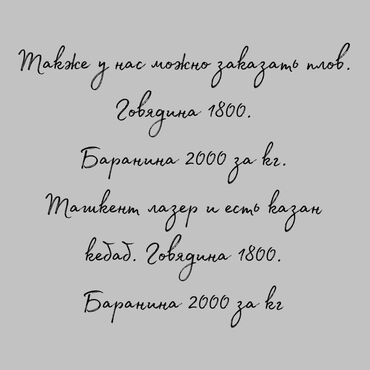 Также у нас можно заказать плов.
Говядина 1800.
Баранина 2000 за кг.
Ташкент лазер и есть казан
кебаб. Говядина 1800.
Баранина 2000 за кг